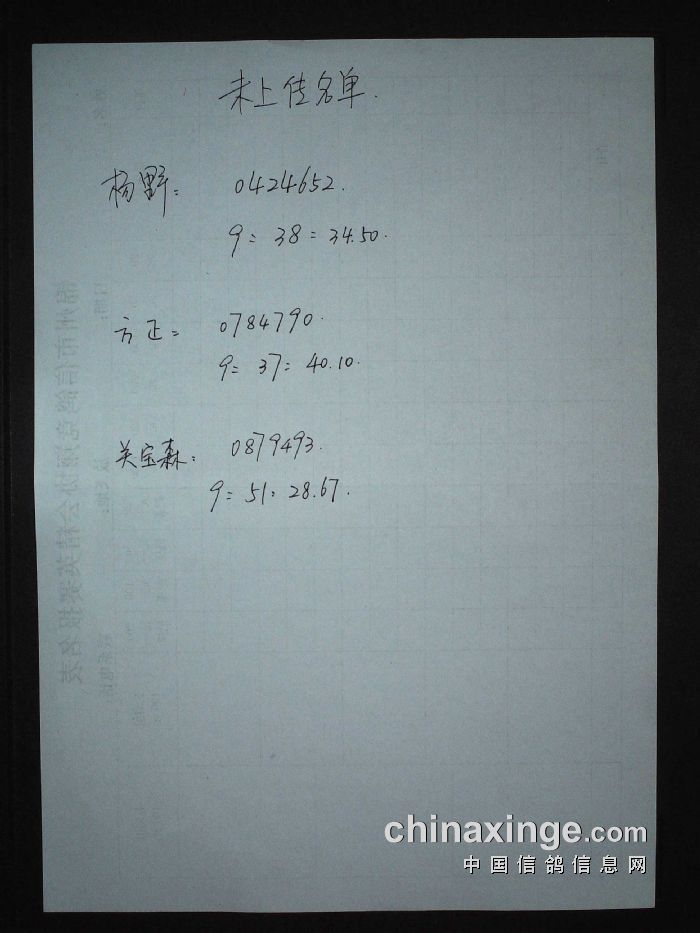 未上传名单.
杨野: 0424652.
9: 38: 34.50.
方正: 0784790.
9: 37: 40.10.
关宝森: 0879493.
9: 51: 28.67.
chinaxinge.com
中国信鸽信息网